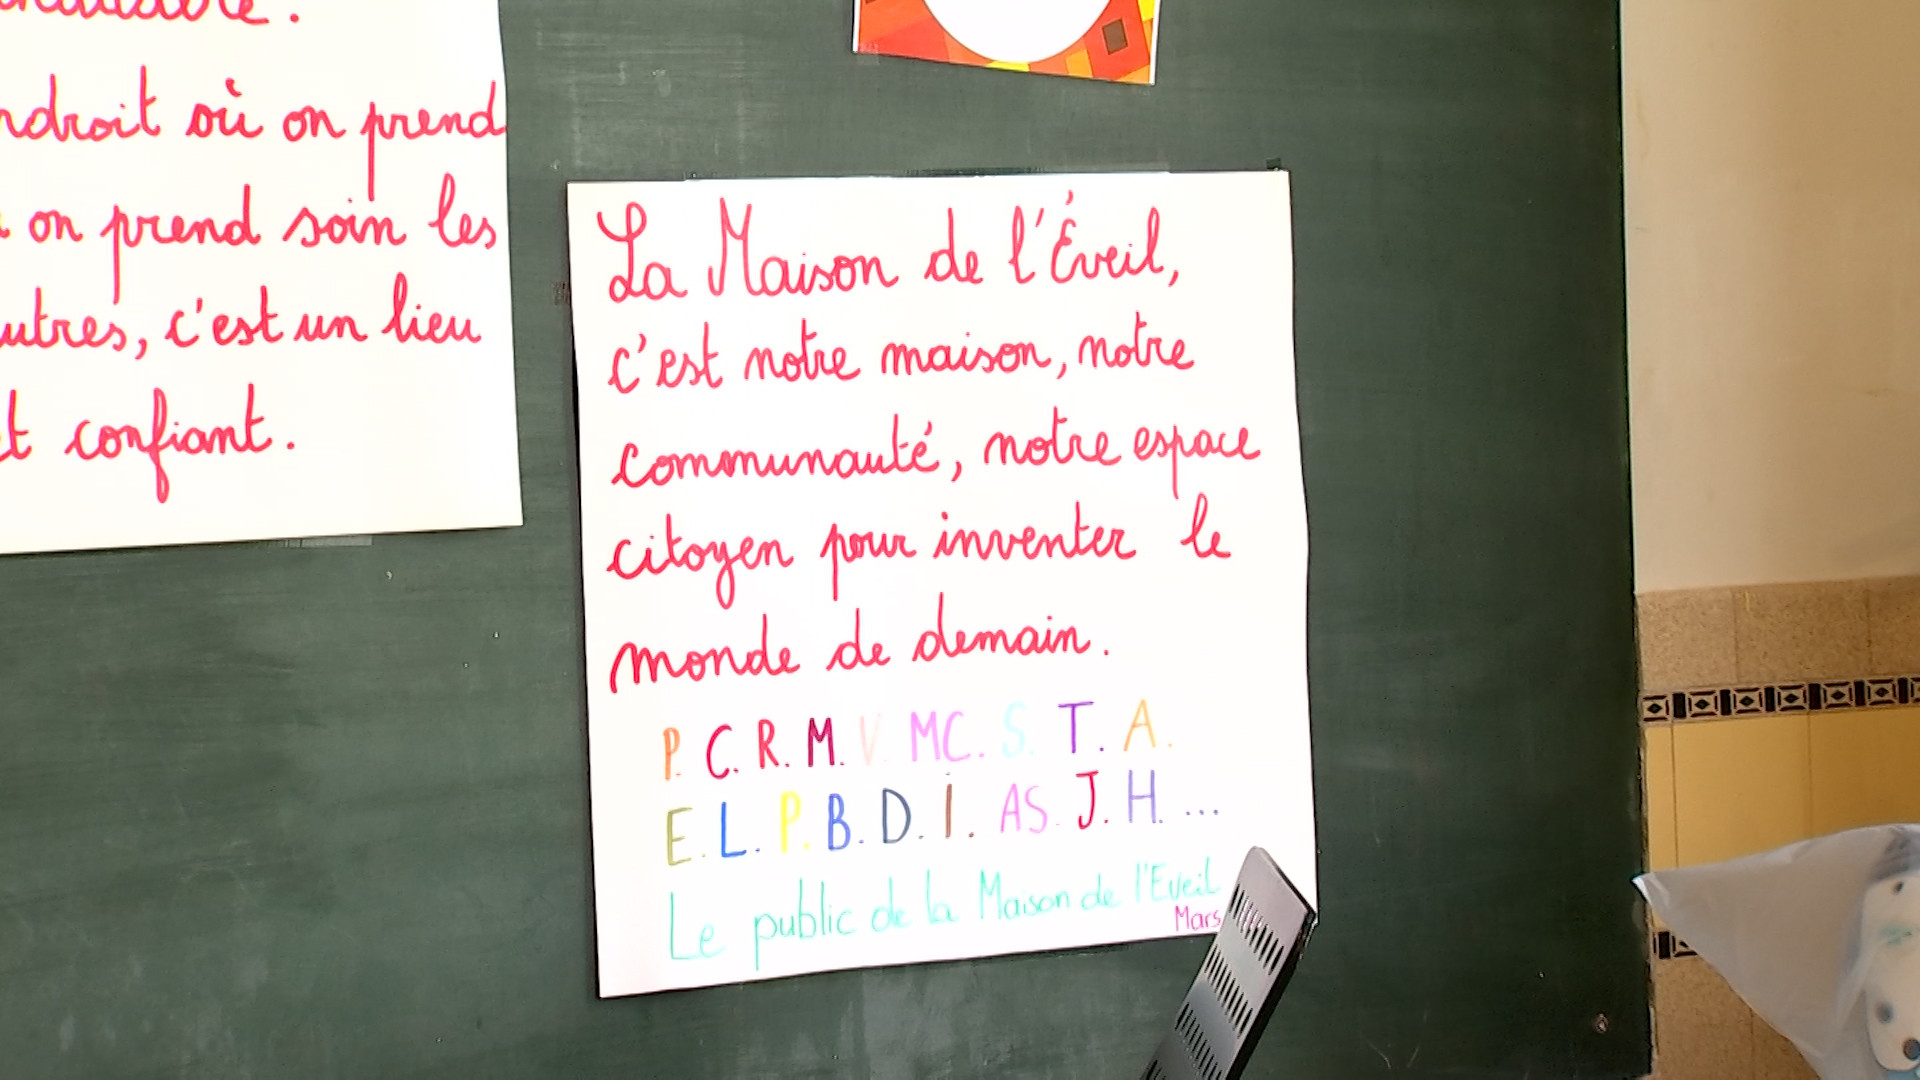 ndroit où on prend
on prend soin les
utres, c'est un lieu
et confiant.
La Maison de l'Éveil,
c'est notre maison, notre
communauté, notre espace
citoyen pour inventer le
monde de demain.
P. C. R. M. V. MC. S. T. A.
E. L. P. B. D. I. AS. J. H. ...
Le public de la Maison de l'Eveil
Mars